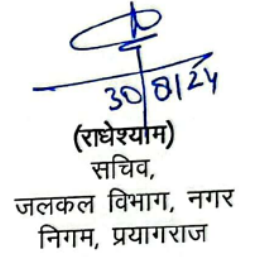 30/8/24
(राधेश्याम)
सचिव,
जलकल विभाग, नगर
निगम, प्रयागराज